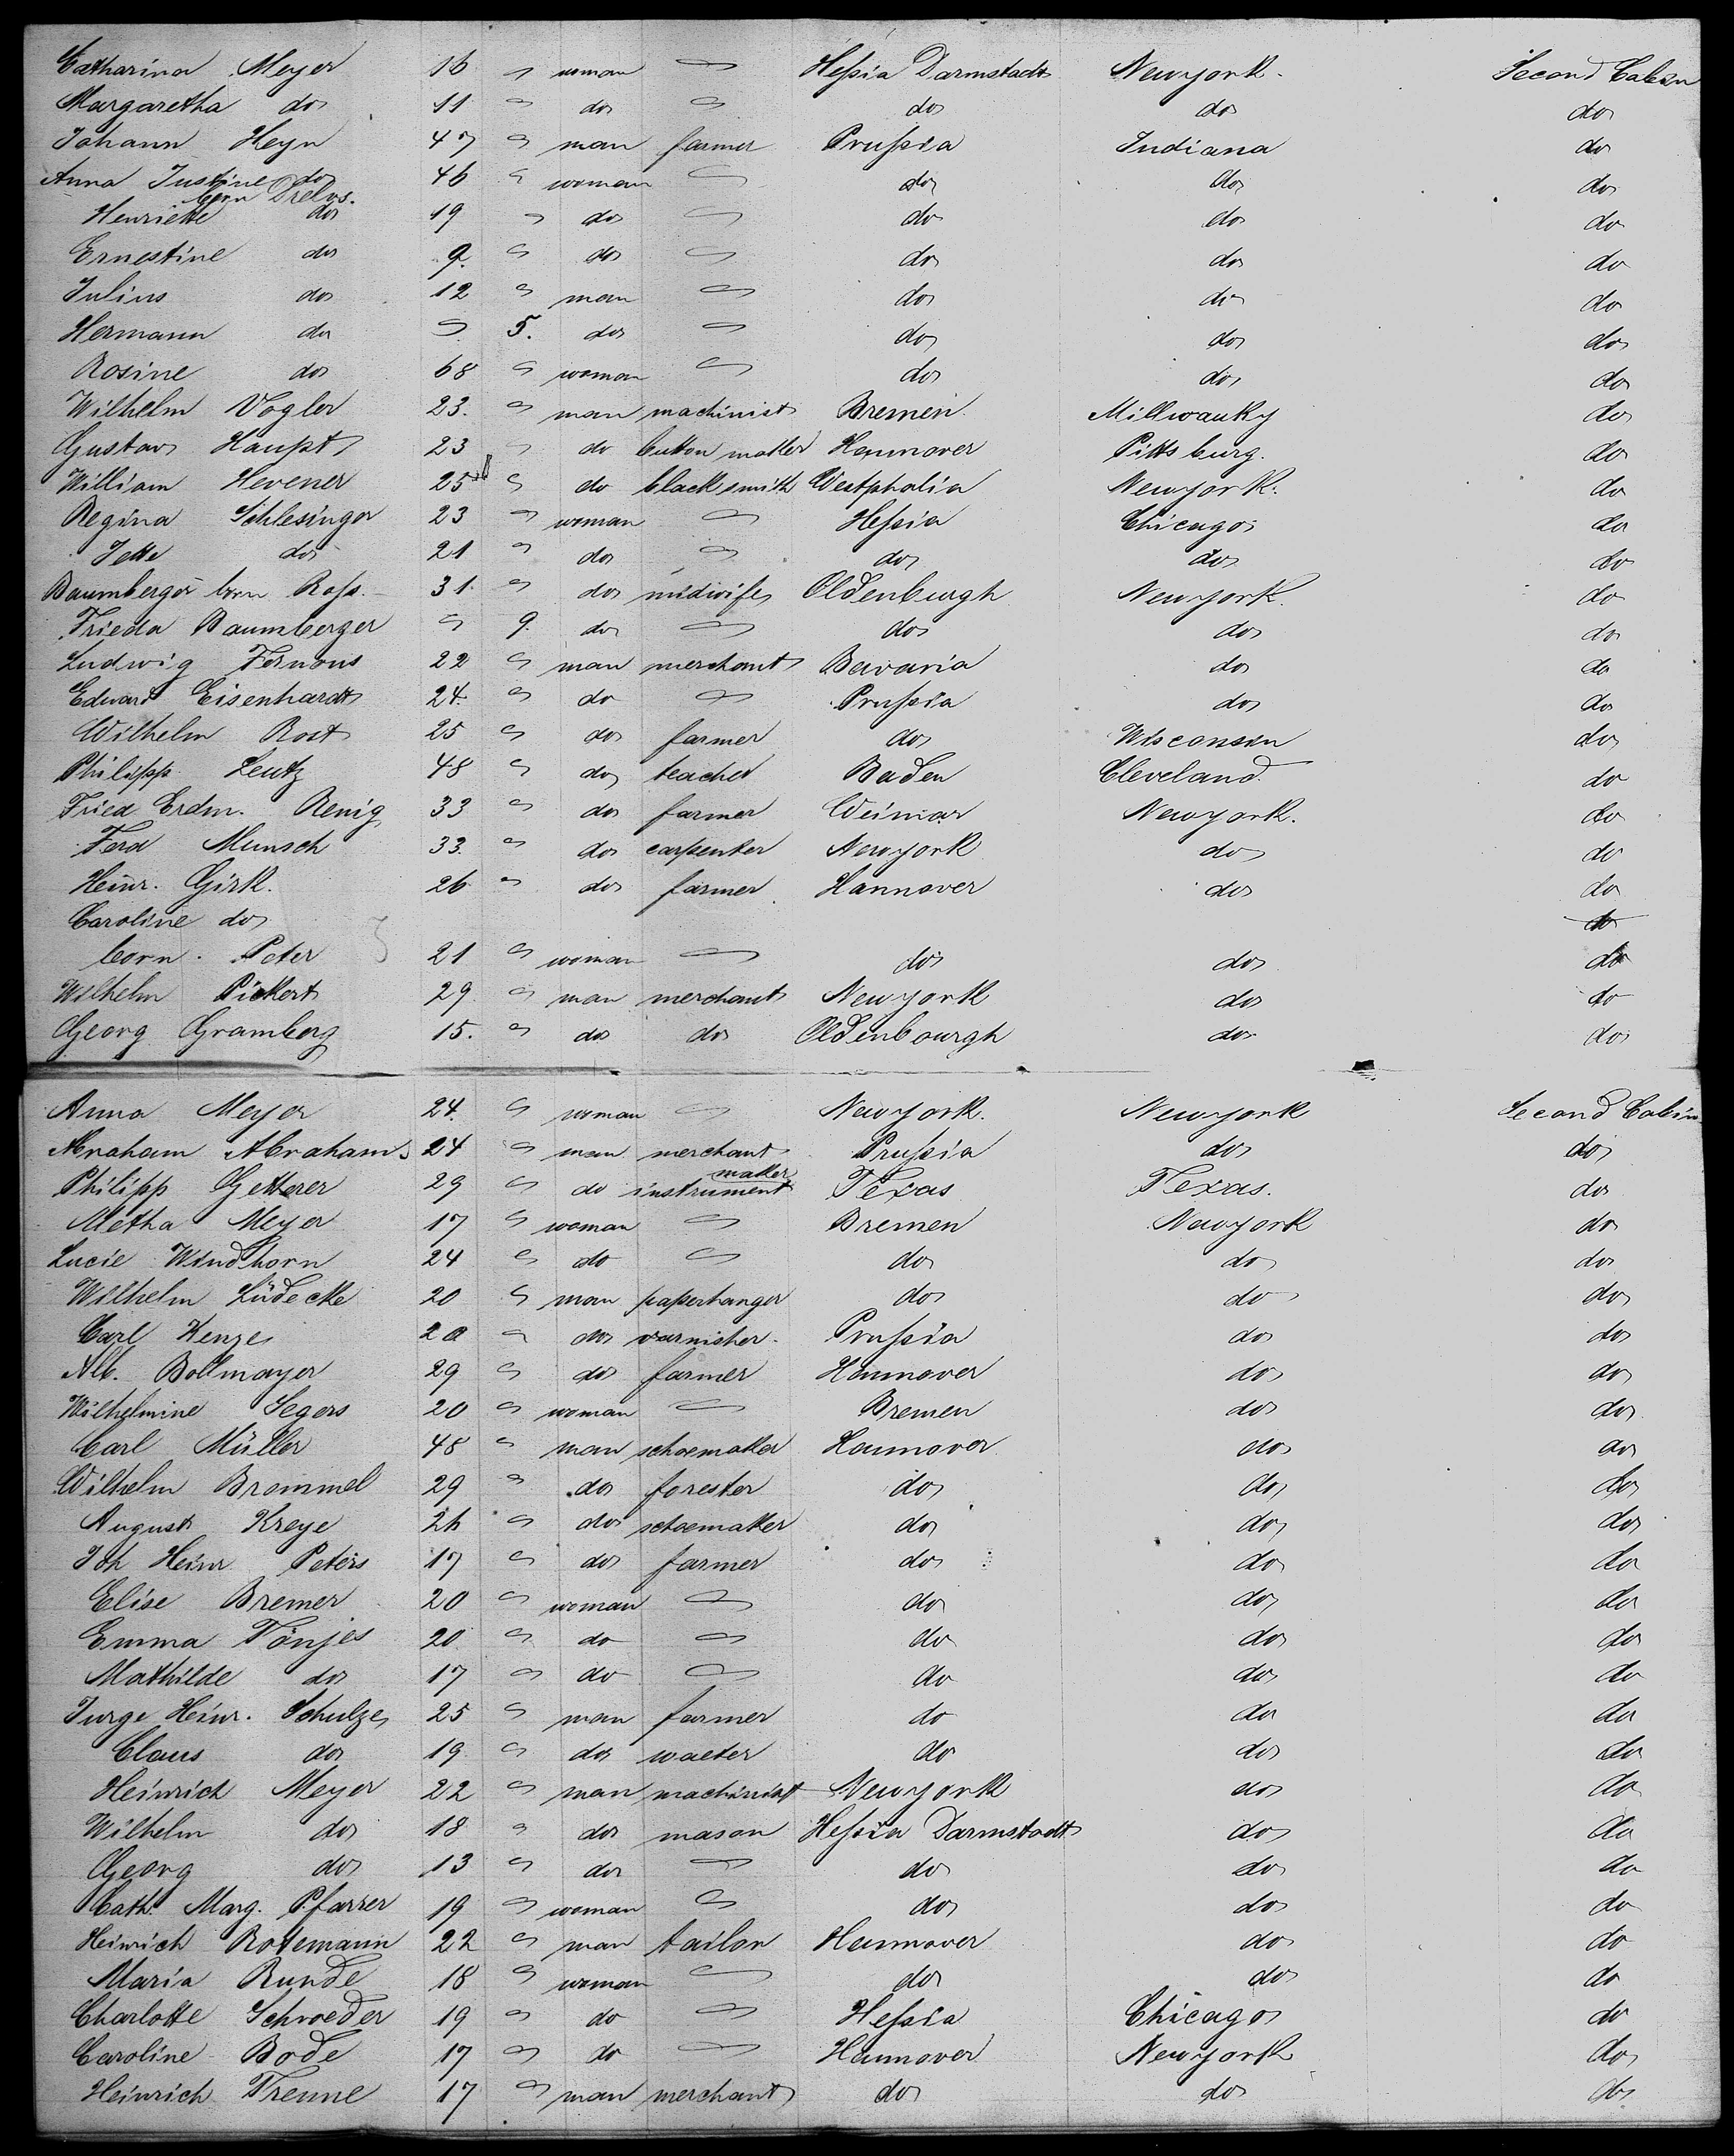 Catharina Meyer 16 woman Hessia Darmstadt Newyork. Second Cabin
Margaretha do 11 do do do do
Johann Heyn 47 man farmer Prussia Indiana do
Anna Justine do 46 woman do do do
born Drelos.
Henriette do 19 do do do do
Ernestine do 9. do do do do
Julius do 12 man do do do
Hermann do 5. do do do do
Rosine do 68 woman do do do
Wilhelm Vogler 23. man machinist Bremen Millwauky do
Gustav Haupt 23 do button maker Hannover Pittsburg. do
William Hevener 25 do blacksmith Westphalia Newyork. do
Regina Schlesinger 23 woman Hessia Chicago do
Jette do 21 do do do do
Baumberger born Ross. 31. do midwife Oldenburgh Newyork. do
Frieda Baumberger 9. do do do do
Ludwig Fernous 22 man merchant Bavaria do do
Edward Eisenhardt 24. do Prussia do do
Wilhelm Rost 25 do farmer do Wisconsin do
Philipp Leutz 48 do teacher Baden Cleveland. do
Fried Erdm. Renig 33 do farmer Weimar Newyork. do
Ferd Munsch 33. do carpenter Newyork do do
Heinr. Girk. 26 do farmer Hannover do do
Caroline do do
born. Peter 21 woman do do do
Wilhelm Pickert 29. man merchant Newyork do do
Georg Gramberg 15. do do Oldenbourgh do do
Anna Meyer 24. woman Newyork. Newyork Second Cabin
Abraham Abrahams 24 man merchant Prussia do do
maker
Philipp Getterer 29 do instrument Texas Texas. do
Metha Meyer 17 woman Bremen Newyork do
Lucie Windhorn 24 do do do do
Wilhelm Lüdecke 20 man paperhanger do do do
Carl Henze 20 do varnisher. Prussia do do
Alb. Bollmayer 29 do farmer Hannover do do
Wilhelmine Segers 20 woman Bremen do do
Carl Müller 48 man schoemaker Hannover do do
Wilhelm Brommel 29 do forester do do do
August Kreye 26 do schoemaker do do do
Joh Heinr Peters 17 do farmer do do do
Elise Bremer 20 woman do do do
Emma Tönjes 20 do do do do
Mathilde do 17 do do do do
Jurge Heinr. Schulze 25 man farmer do do do
Claus do 19 do waeter do do do
Heinrich Meyer 22 man machinist Newyork do do
Wilhelm do 18 do mason Hessia Darmstadt do do
Georg do 13 do do do do
Cath. Marg. Pfarrer 19 woman do do do
Heinrich Rotemann 22 man tailor Hannover do do
Maria Runde 18 woman do do do
Charlotte Schroeder 19 do Hessia Chicago do
Caroline Bode 17 do Hannover Newyork do
Heinrich Trenne 17 man merchant do do do